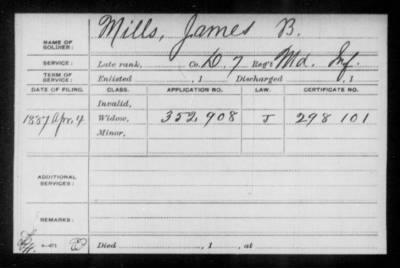 NAME OF SOLDIER: Mills, James B.
SERVICE: Late rank, Co. D, 7 Reg't Md. Inf.
TERM OF SERVICE: Enlisted , 1 Discharged , 1
DATE OF FILING. CLASS. APPLICATION NO. LAW. CERTIFICATE NO.
Invalid,
1887 Apr. 4 Widow, 352,908 J 298 101
Minor,
ADDITIONAL SERVICES:
REMARKS:
Died , 1 , at